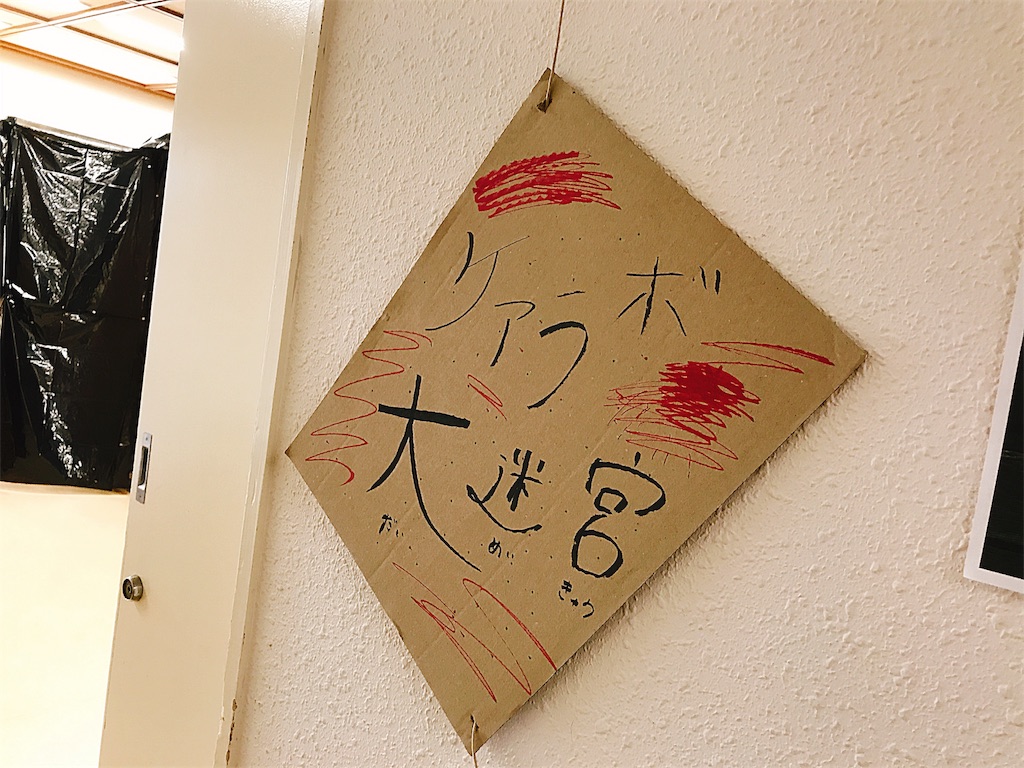 ケアラボ
大迷宮
だいめいきゅう